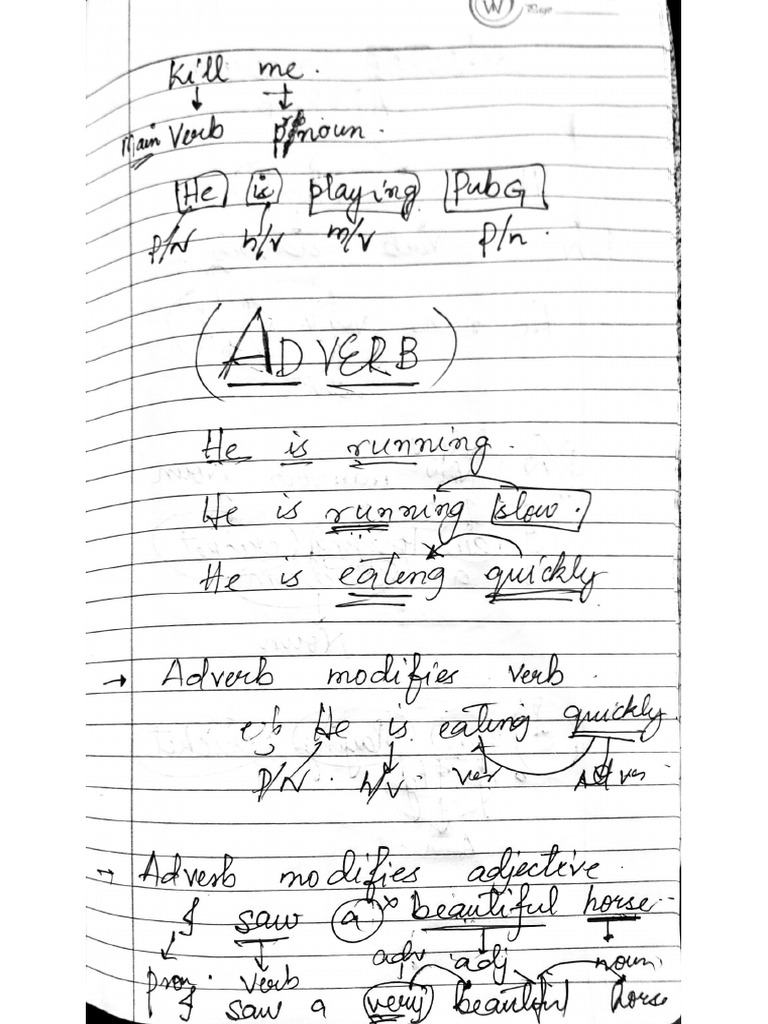 Kill me.
Main Verb P/noun.
He is playing PubG
P/N h/v m/v P/n.
(ADVERB)
He is running.
He is running slow.
He is eating quickly
→ Adverb modifies verb.
He is eating quickly
P/N. h/v. ver Ad ver
→ Adverb modifies adjective.
I saw a beautiful horse.
pron. verb adv adj noun
I saw a very beautiful horse